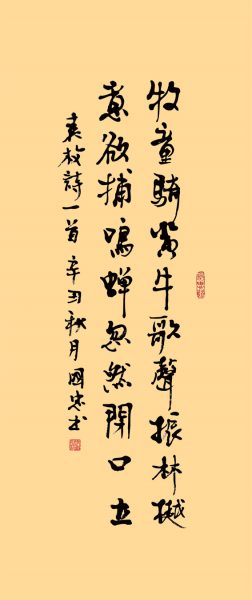 牧童騎黃牛歌聲振林樾
意欲捕鳴蟬忽然閉口立
袁枚詩一首辛丑秋月國忠书